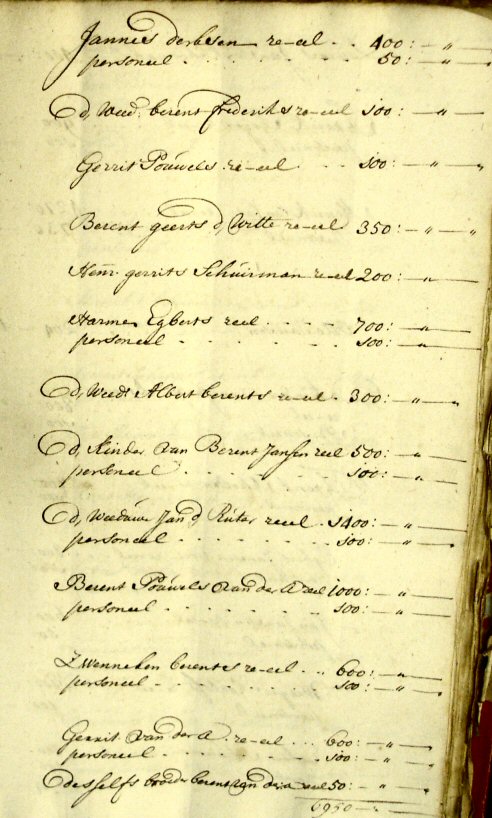 Jannes derksen re-eel . . 400: — " —
personeel . . . . . . 50: — " —
D, Wed. berent frederiks re-eel 100: — " —
Gerrit Pouwels re-eel . . 100: — " —
Berent geerts d, Witte re-eel 350: — " —
Henr. gerrits Schuirman re-el 200: — "
Harmen Egberts reel . . . . 700: — "
personeel . . . . . . 100: — "
D, Weed: Albert berents re-eel . 300: — " —
D, Kinder van Berent Jansen reel 500: — "
personeel . . . . . 100: — "
D, Weeduwe Jan d Ruiter reeel . 1400: — "
personeel . . . . . . 100: — " —
Berent Pouwels van der A reel 1000: — "
personeel . . . . . . 100: — " —
Wenneken berents re-eel . . 600: — "
personeel . . . . . . 100: — " —
Gerrit van der A re-eel . . . 600: — " —
personeel . . . . . . 100: — " —
desselfs broeder berent van der a reel 50: — " —
6950 —